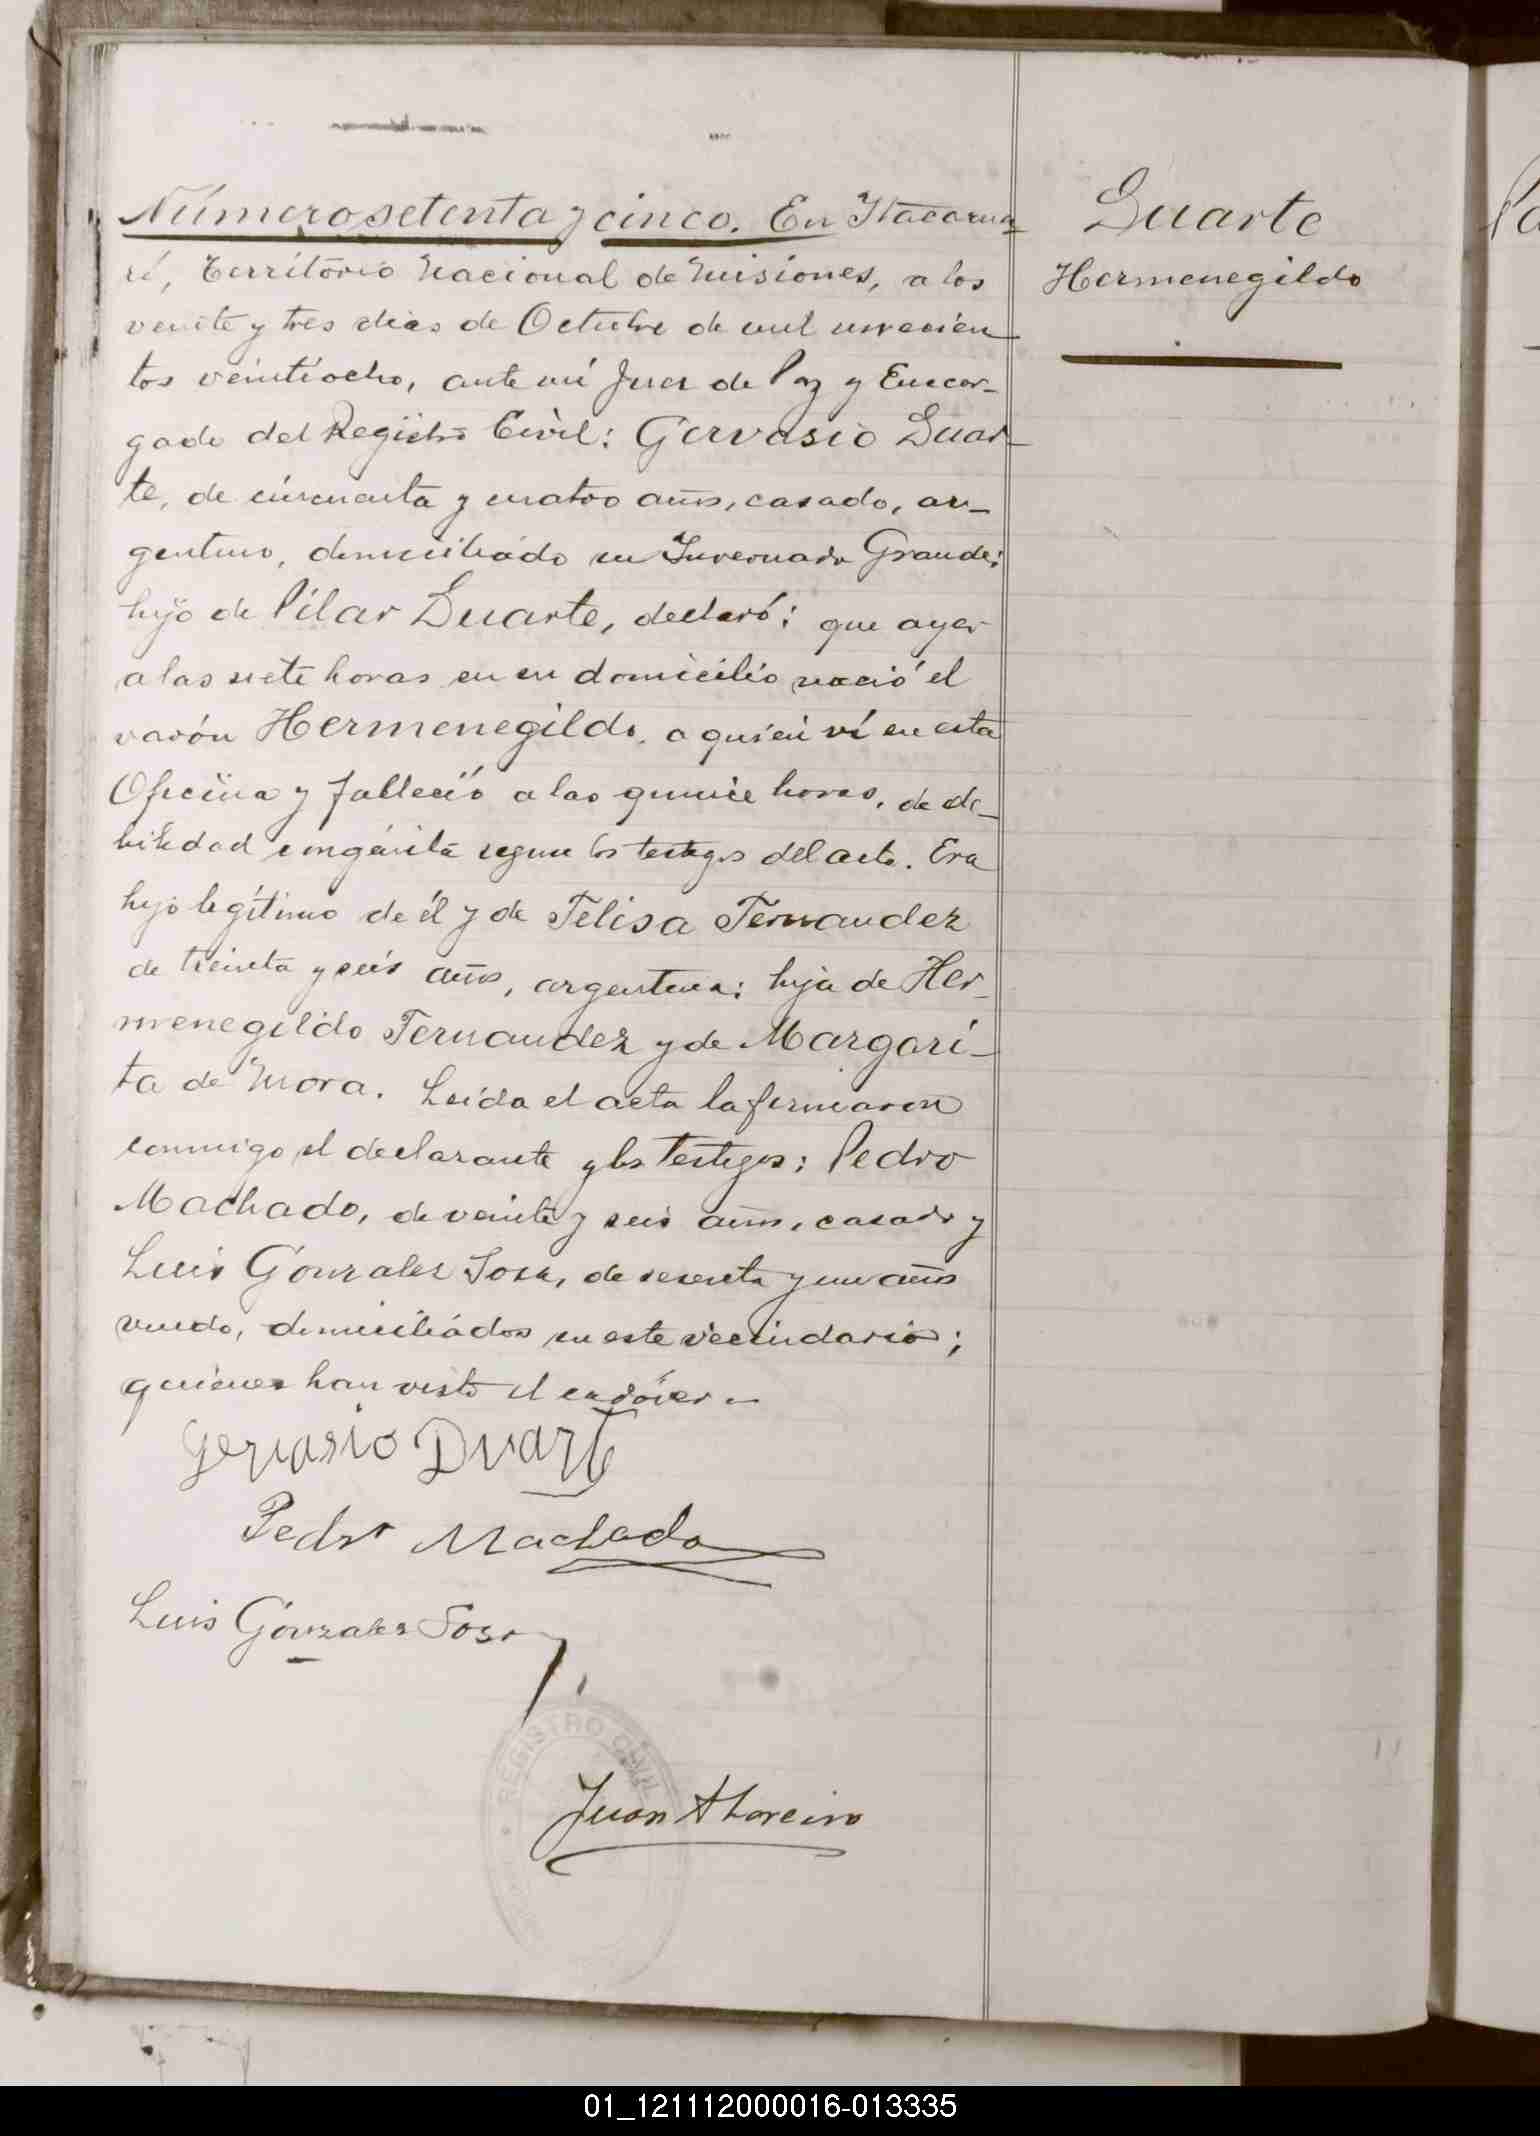 Número setenta y cinco. En Itacarua-
rí, Territorio Nacional de Misiones, a los
veinte y tres dias de Octubre de mil novecien
tos veintiocho, ante mí Juez de Paz y Encar-
gado del Registro Civil: Gervasio Duar-
te, de cincuenta y cuatro años, casado, ar-
gentino, domiciliado en Invernada Grande;
hijo de Pilar Duarte, declaró: que ayer
a las siete horas en su domicilio nació el
varón Hermenegildo, a quien ví en esta
Oficina y falleció a las quince horas, de de-
bilidad congénita segun los testigos del acta. Era
hijo legítimo de él y de Felisa Fernandez
de treinta y seis años, argentina; hija de Her-
menegildo Fernandez y de Margari-
ta de Mora. Leida el acta la firmaron
conmigo el declarante y los testigos: Pedro
Machado, de veinte y seis años, casado y
Luis Gonzalez Sosa, de sesenta y un años
viudo, domiciliados en este vecindario;
quienes han visto el cadáver.-
Gervasio Duarte
Pedro Machado
Luis Gonzalez Sosa
REGISTRO CIVIL
Juan A Loreiro
Duarte
Hermenegildo
01_121112000016-013335